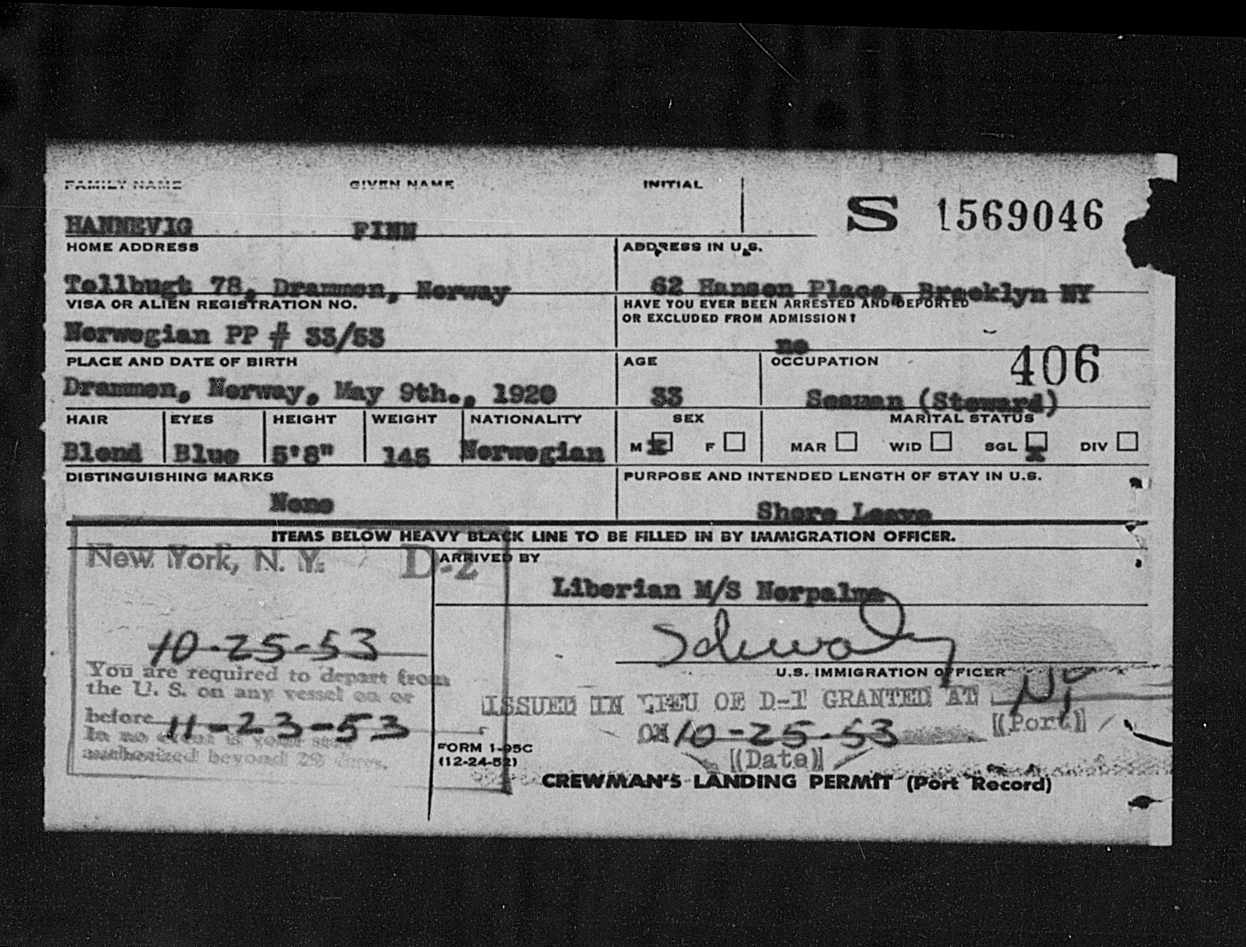 FAMILY NAME GIVEN NAME INITIAL
S 1569046
HANNEVIG FINN
HOME ADDRESS ADDRESS IN U.S.
Tollbugt 78, Drammen, Norway 62 Hanson Place, Brooklyn NY
VISA OR ALIEN REGISTRATION NO. HAVE YOU EVER BEEN ARRESTED AND DEPORTED
OR EXCLUDED FROM ADMISSION?
Norwegian PP # 33/53 no
PLACE AND DATE OF BIRTH AGE OCCUPATION 406
Drammen, Norway, May 9th., 1920 33 Seaman (Steward)
HAIR EYES HEIGHT WEIGHT NATIONALITY SEX MARITAL STATUS
Blond Blue 5'8" 145 Norwegian M x F MAR WID SGL x DIV
DISTINGUISHING MARKS PURPOSE AND INTENDED LENGTH OF STAY IN U.S.
None Shore Leave
ITEMS BELOW HEAVY BLACK LINE TO BE FILLED IN BY IMMIGRATION OFFICER.
New York, N. Y. D-2 ARRIVED BY
Liberian M/S Norpalma
10-25-53
U.S. IMMIGRATION OFFICER
You are required to depart from
the U. S. on any vessel on or
before 11-23-53
In no event is your stay
authorized beyond 29 days.
ISSUED IN LIEU OF D-1 GRANTED AT NY
((Port))
ON 10-25-53
((Date))
FORM I-95C
(12-24-52)
CREWMAN'S LANDING PERMIT (Port Record)